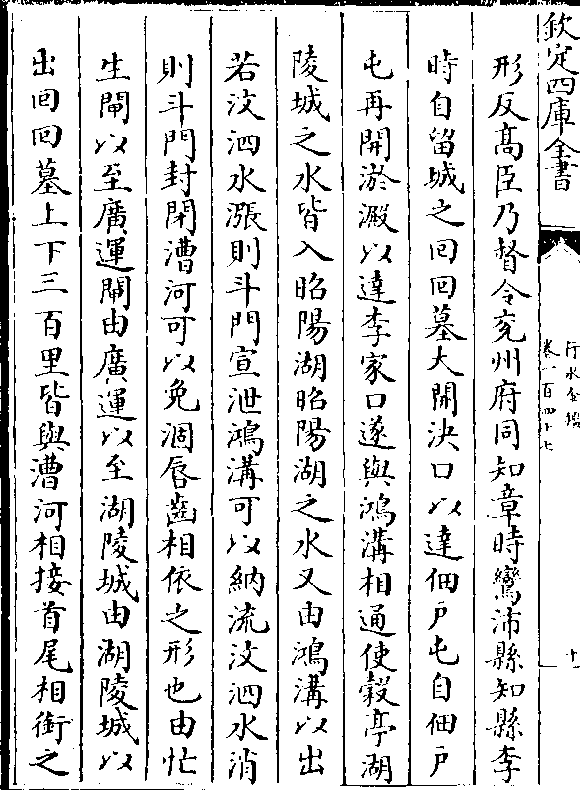 欽定四庫全書
行水金鑑
卷一百四十七
十
形反髙臣乃督令兖州府同知章時鸞沛縣知縣李
時自留城之回回墓大開決口以達佃戶屯自佃戶
屯再開淤澱以達李家口遂與鴻溝相通使榖亭湖
陵城之水皆入昭陽湖昭陽湖之水又由鴻溝以出
若汶泗水漲則斗門宣泄鴻溝可以納流汶泗水消
則斗門封閉漕河可以免涸唇齒相依之形也由忙
生閘以至廣運閘由廣運以至湖陵城由湖陵城以
出回回墓上下三百里皆與漕河相接首尾相銜之